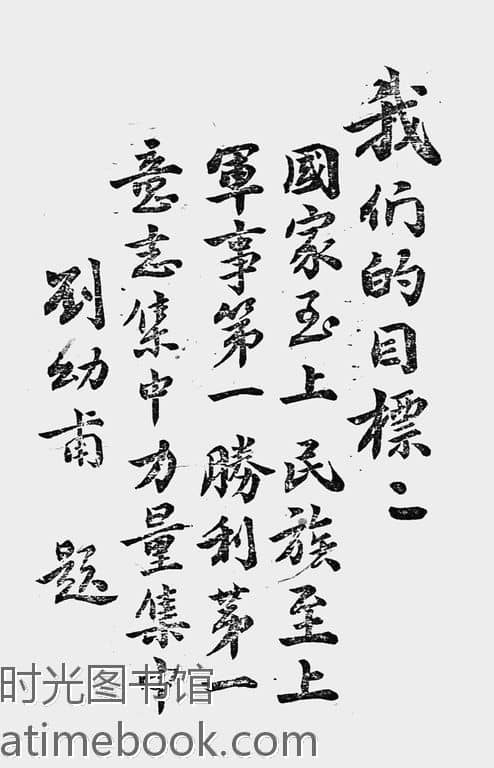 我们的目標:
國家至上民族至上
軍事第一勝利第一
意志集中力量集中
劉幼甫 題
时光图书馆
atimebook.com